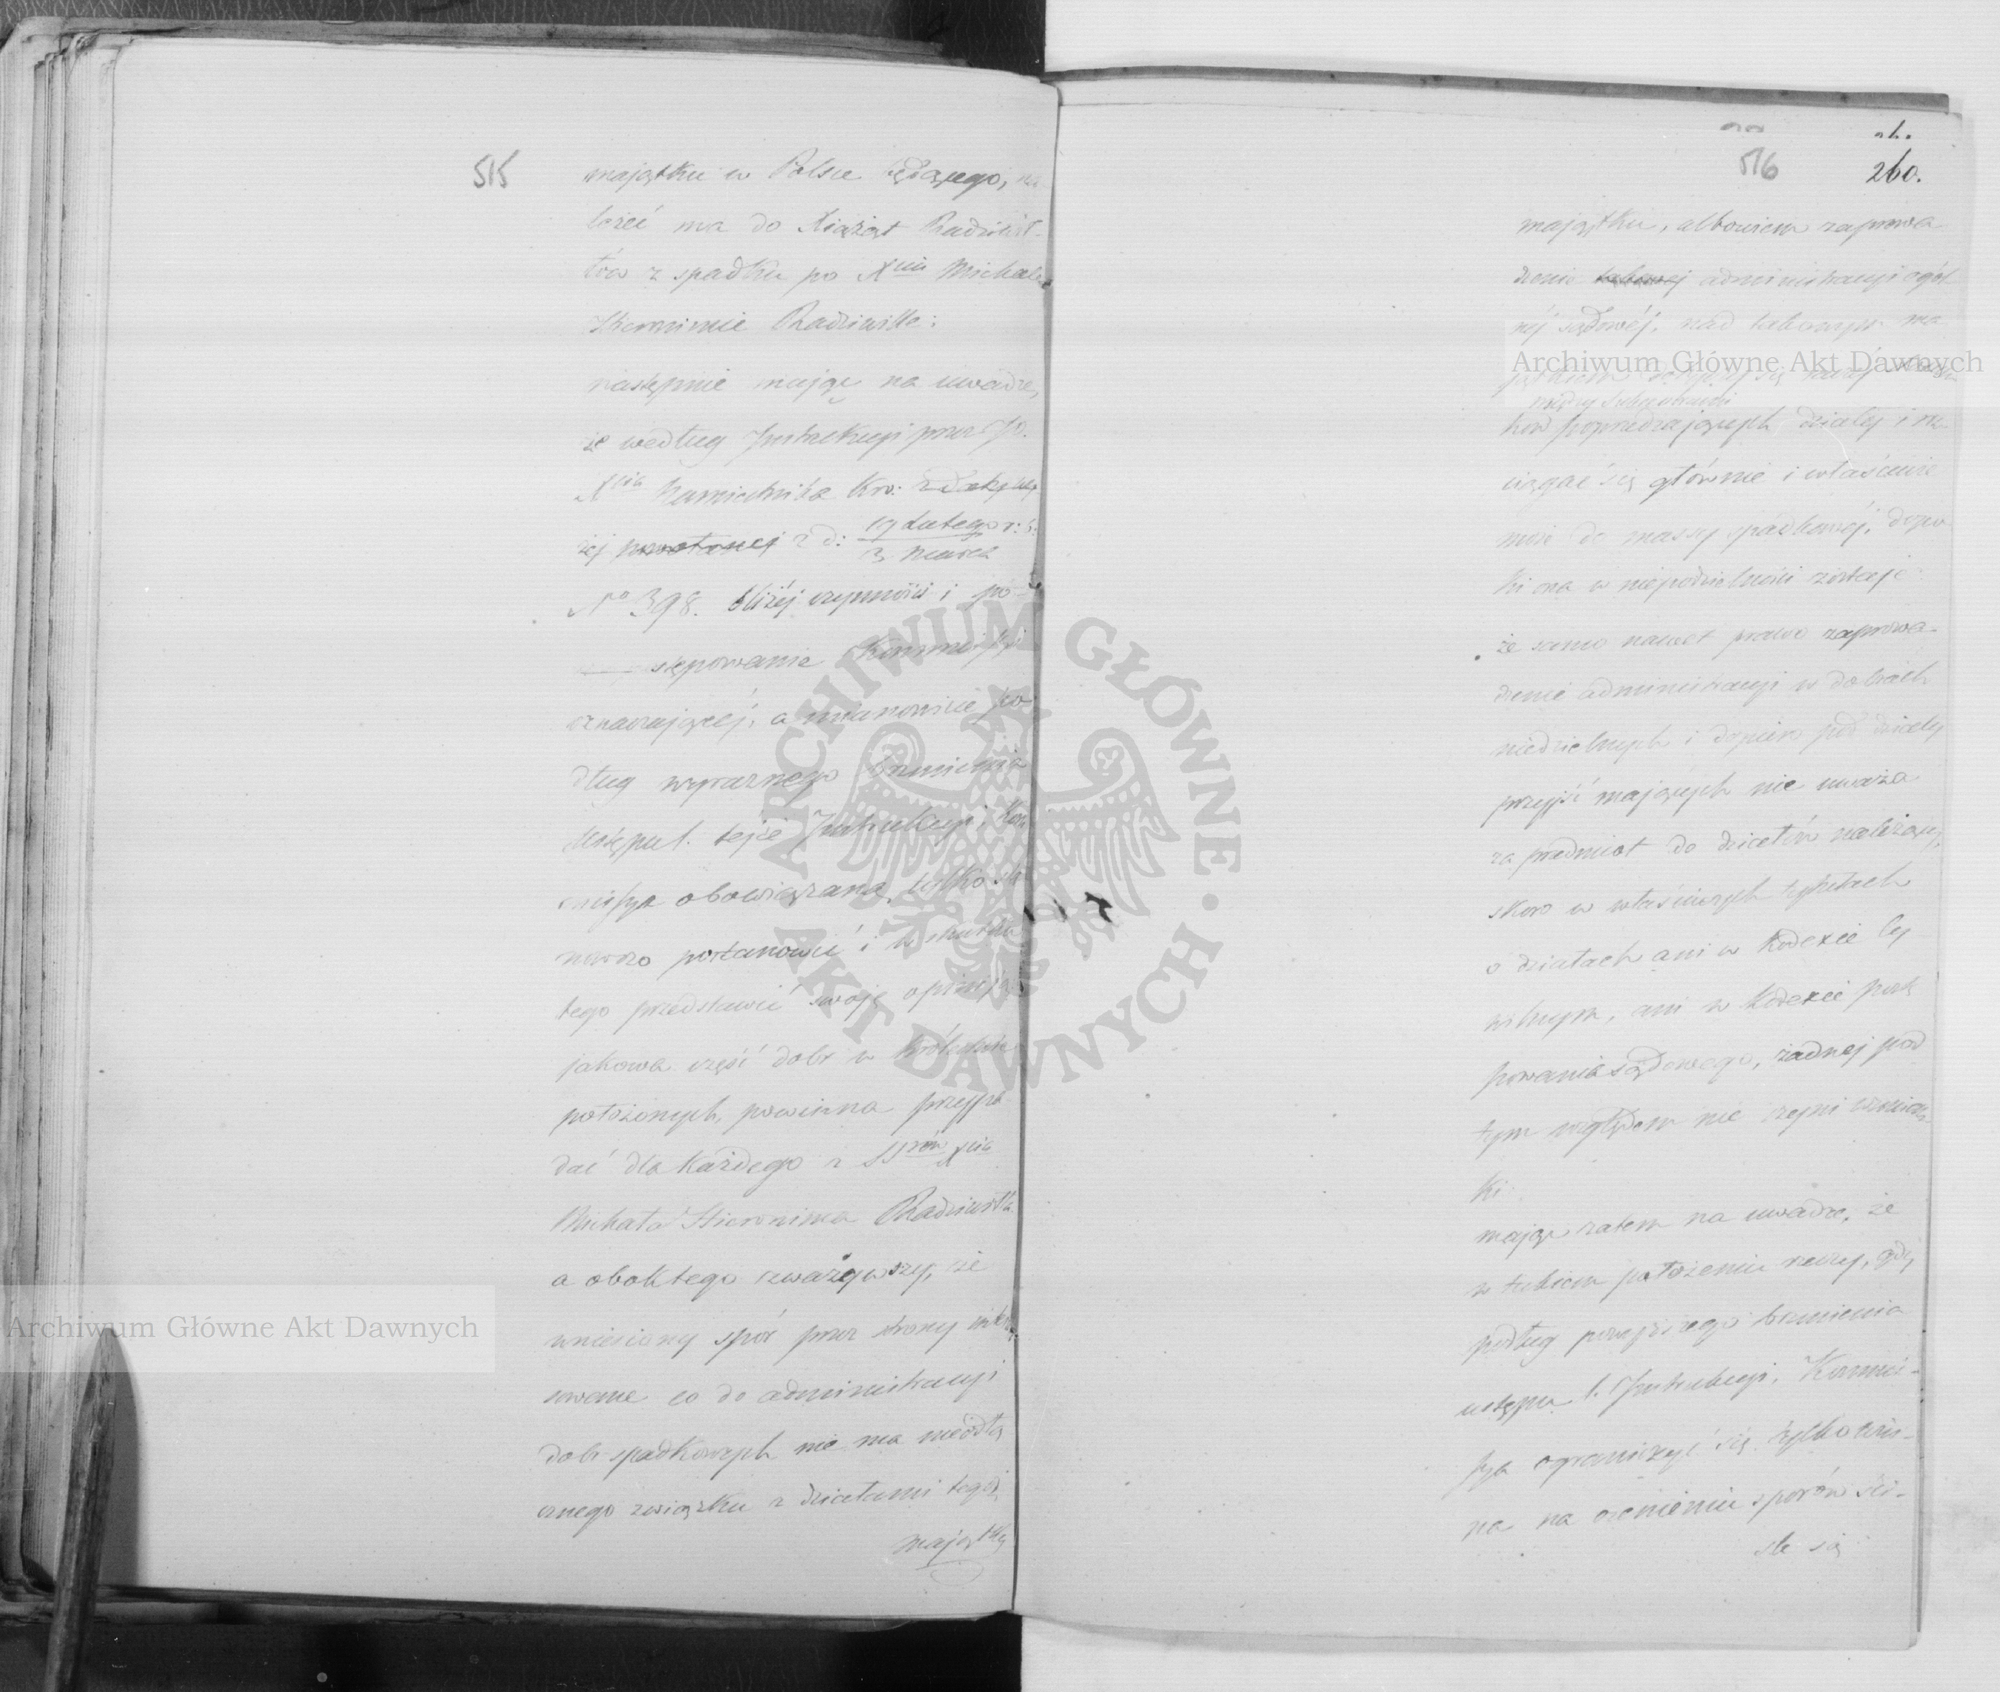 515
majątku w Polsce będącego, na
leżeć ma do Xiążąt Radziwił-
łów z spadku po Xciu Michale
Hieronimie Radziwille:
następnie mając na uwadze,
że według Instrukcyi przez JO.
Xcia Namiestnika Kró:
żej powołanej z d: 19 Lutego / 3 Marca r: b:
No 398. bliżej czynności i po
stępowanie Kommissyi
oznaczającej, a mianowicie po
dług wyraźnego brzmienia
ustępu 1. tejże Instrukcyi, Kom
missya obowiązana tylko sta
nowczo postanowić i w skutku
tego przedstawić swoję opinię
jakowa część dóbr w Królestwie
położonych, powinna przypa
dać dla każdego z SSrów Xcia
Michała Hieronima Radziwiłła
a obok tego zważywszy, że
wniesiony spór przez strony inte
sowane co do administracyi
dóbr spadkowych nie ma nieodłą
cznego związku z działami tegoż
majątku
516
260.
majątku, albowiem zaprowa
dzenie takowej administracyi ogól
nej sądowej, nad takowym ma
Archiwum Główne Akt Dawnych
między Subcessorami
ków poprzedzających działy i roz
ciągać się głównie i właściwie
musi do massy spadkowej, dopó
ki ona w niepodzielności zostaje
że samo nawet prawo zaprowa
dzenie administracyi w dobrach
niedzielnych i dopiero pod działy
przyjść mających nie uważa
za przedmiot do działów należący,
skoro w właściwych tytułach
o działach ani w Kodexie Cy
wilnym, ani w Kodexie postę
powania sądowego, żadnej pod
tym względem nie czyni wzmian
ki
mając zatem na uwadze, że
w takiem położeniu rzeczy, gdy
podług powyższego brzmienia
ustępu 1. Instrukcyi, Kommis-
sya ograniczyć się tylko win-
na na ocenieniu sporów ści-
śle są
Archiwum Główne Akt Dawnych
ARCHIWUM GŁÓWNE AKT DAWNYCH